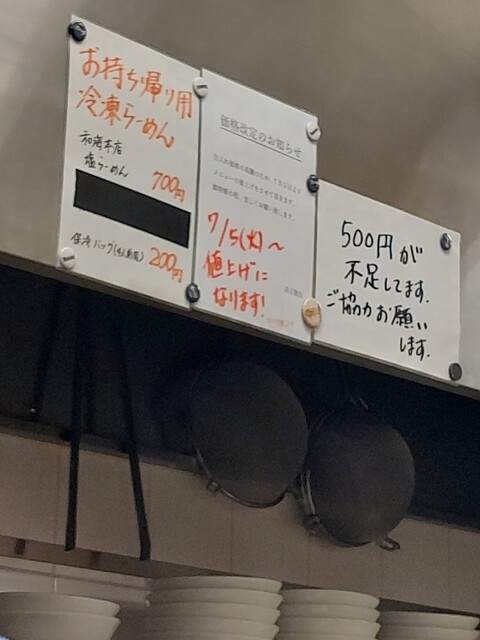 お持ち帰り用
冷凍らーめん
和商本店
塩らーめん
700円
保冷バッグ(4人前用)
200円
価格改定のお知らせ
7/5(火)〜
値上げに
なります!
500円が
不足してます。
ご協力お願い
します。